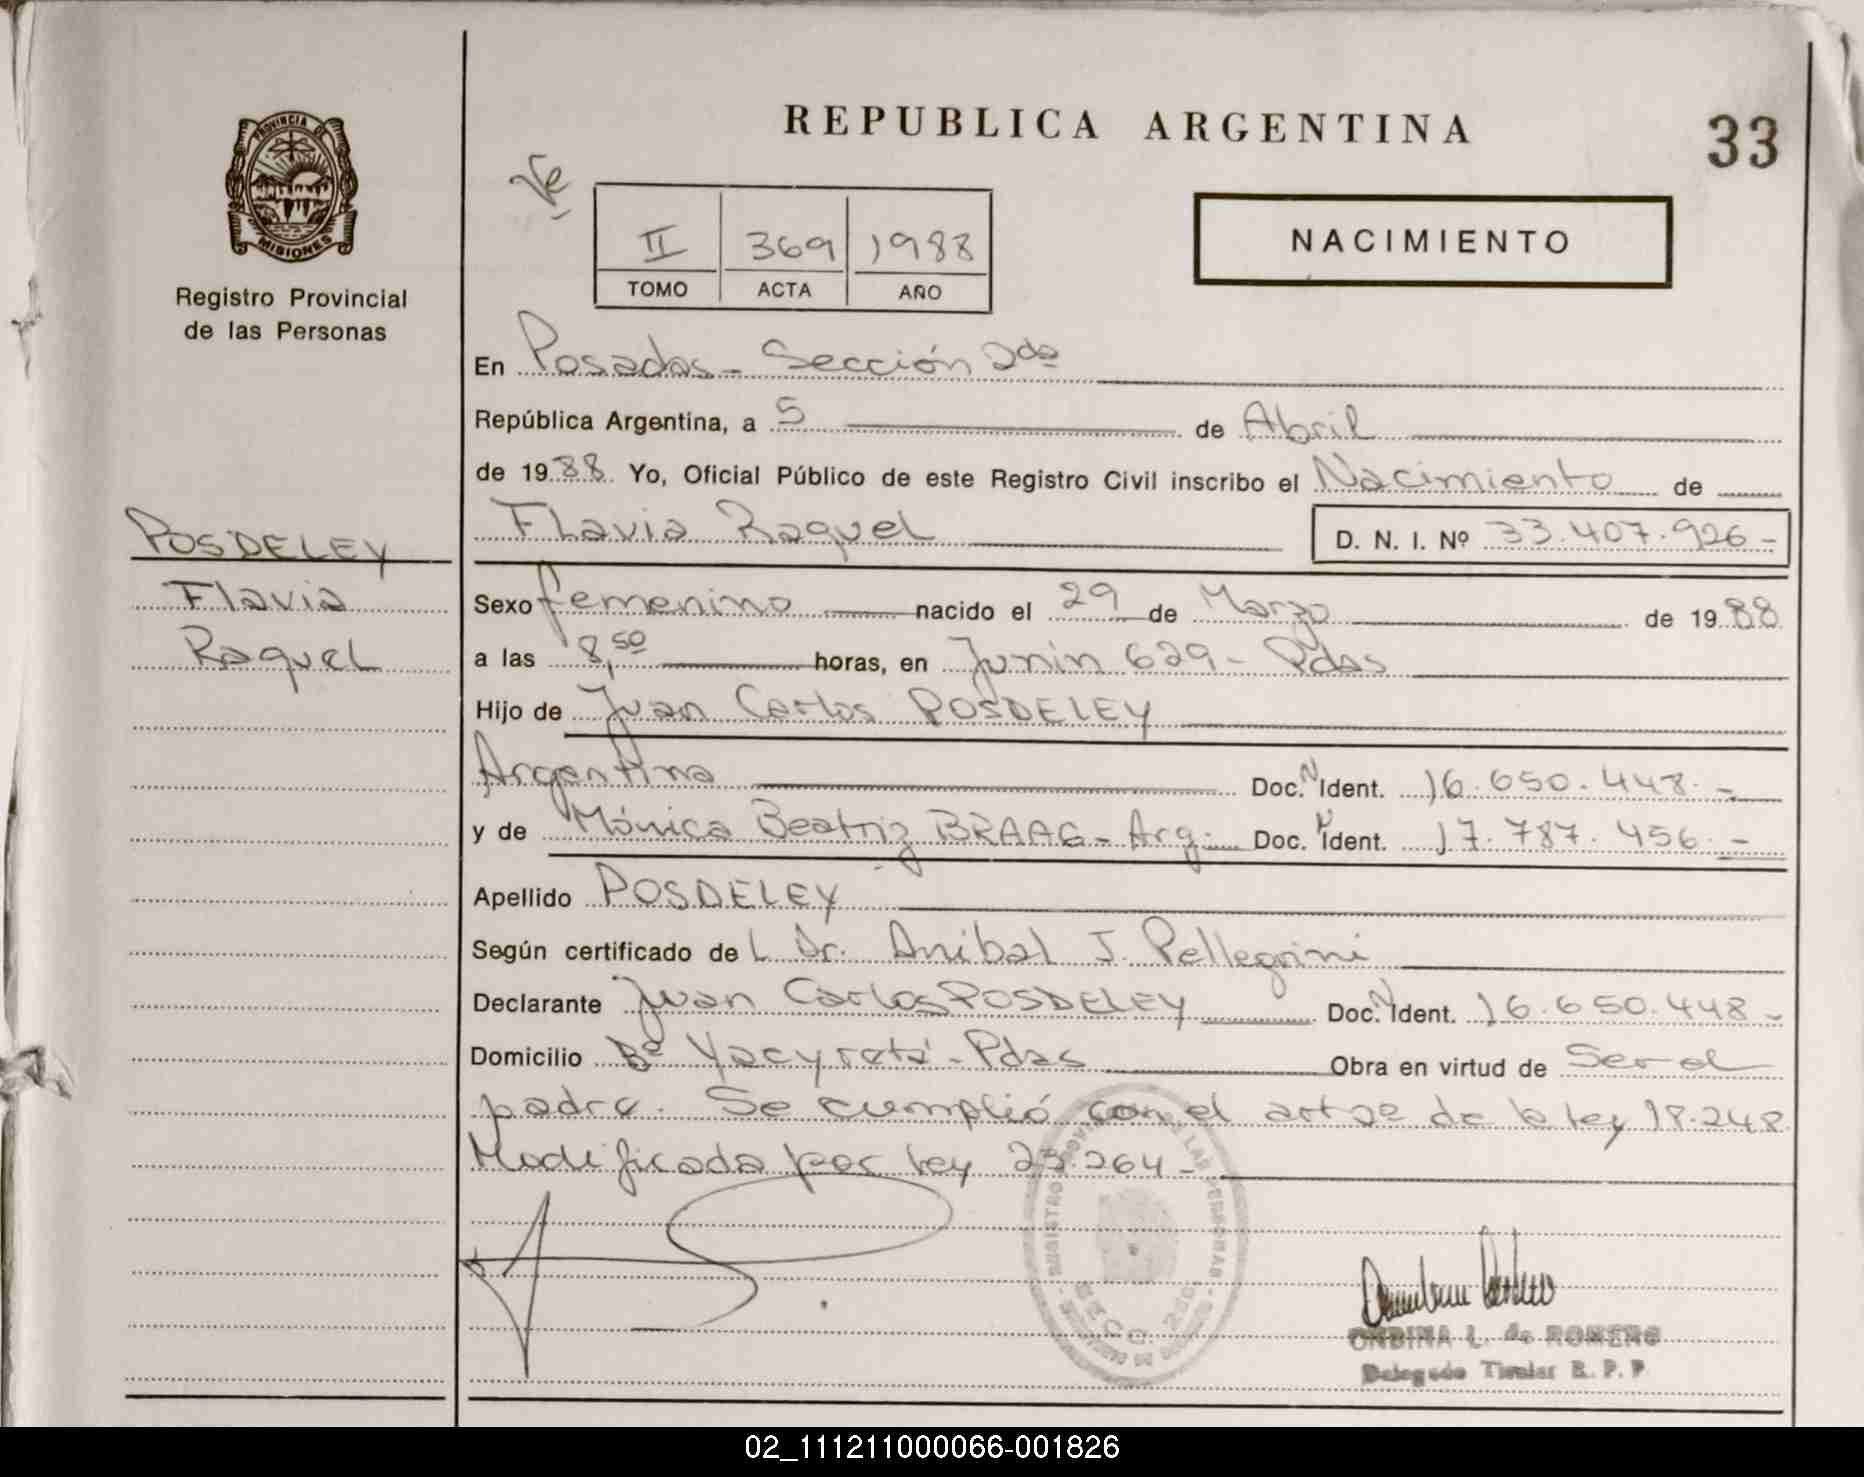 PROVINCIA DE
MISIONES
Registro Provincial
de las Personas
POSDELEY
Flavia
Raquel
REPUBLICA ARGENTINA
33
II 369 1988
TOMO ACTA AÑO
NACIMIENTO
En Posadas - Sección 2da
República Argentina, a 5 de Abril
de 1988 Yo, Oficial Público de este Registro Civil inscribo el Nacimiento de
Flavia Raquel D. N. I. Nº 33.407.926-
Sexo femenino nacido el 29 de Marzo de 1988
a las 8,50 horas, en Junin 629- Pdas
Hijo de Juan Carlos POSDELEY
Argentina Doc. N Ident. 16.650.448.-
y de Mónica Beatriz BRAAG - Arg. Doc. N Ident. 17.787.456.-
Apellido POSDELEY
Según certificado de L Dr. Anibal J. Pellegrini
Declarante Juan Carlos POSDELEY Doc. N Ident. 16.650.448-
Domicilio Bº Yacyretá - Pdas Obra en virtud de Ser el
padre. Se cumplió con el art 2º de la ley 18.248
Modificada por Ley 23.264-
SECC. 2da.
ONDINA L. de ROMERO
Delegado Titular R. P. P
02_111211000066-001826